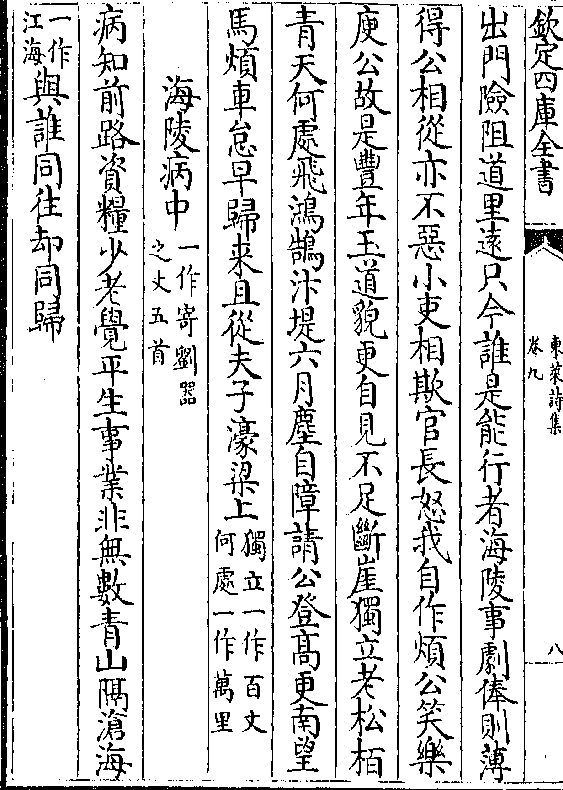 欽定四庫全書
東萊詩集
卷九
八
出門險阻道里遠只今誰是能行者海陵事劇俸則薄
得公相從亦不惡小吏相欺官長怒我自作煩公笑樂
庾公故是豐年玉道貌更自見不足斷崖獨立老松栢
青天何處飛鴻鵠汴堤六月塵自障請公登高更南望
馬煩車怠早歸来且從夫子濠梁上獨立一作百丈
何處一作萬里
海陵病中一作寄劉器
之丈五首
病知前路資糧少老覺平生事業非無數青山隔滄海
一作
江海與誰同往却同歸